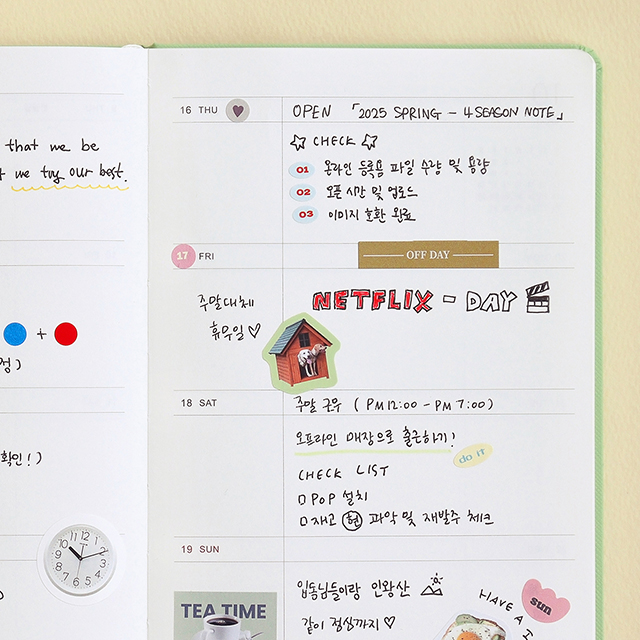 that we be
we try our best.
+
정)
확인!)
16 THU
OPEN 「2025 SPRING - 4 SEASON NOTE」
CHECK
01 온라인 등록용 파일 수량 및 용량
02 오픈 시간 및 업로드
03 이미지 호환 완료
17 FRI
OFF DAY
주말대체
휴무일♡
NETFLIX - DAY
18 SAT
주말 근무 (PM12:00 - PM 7:00)
오프라인 매장으로 출근하기!
do it
CHECK LIST
□ POP 설치
□ 재고 현 파악 및 재발주 체크
19 SUN
입동님들이랑 인왕산
같이 정상까지♡
TEA TIME
HAVE A
sun
12 1 2 3 4 5 6 7 8 9 10 11